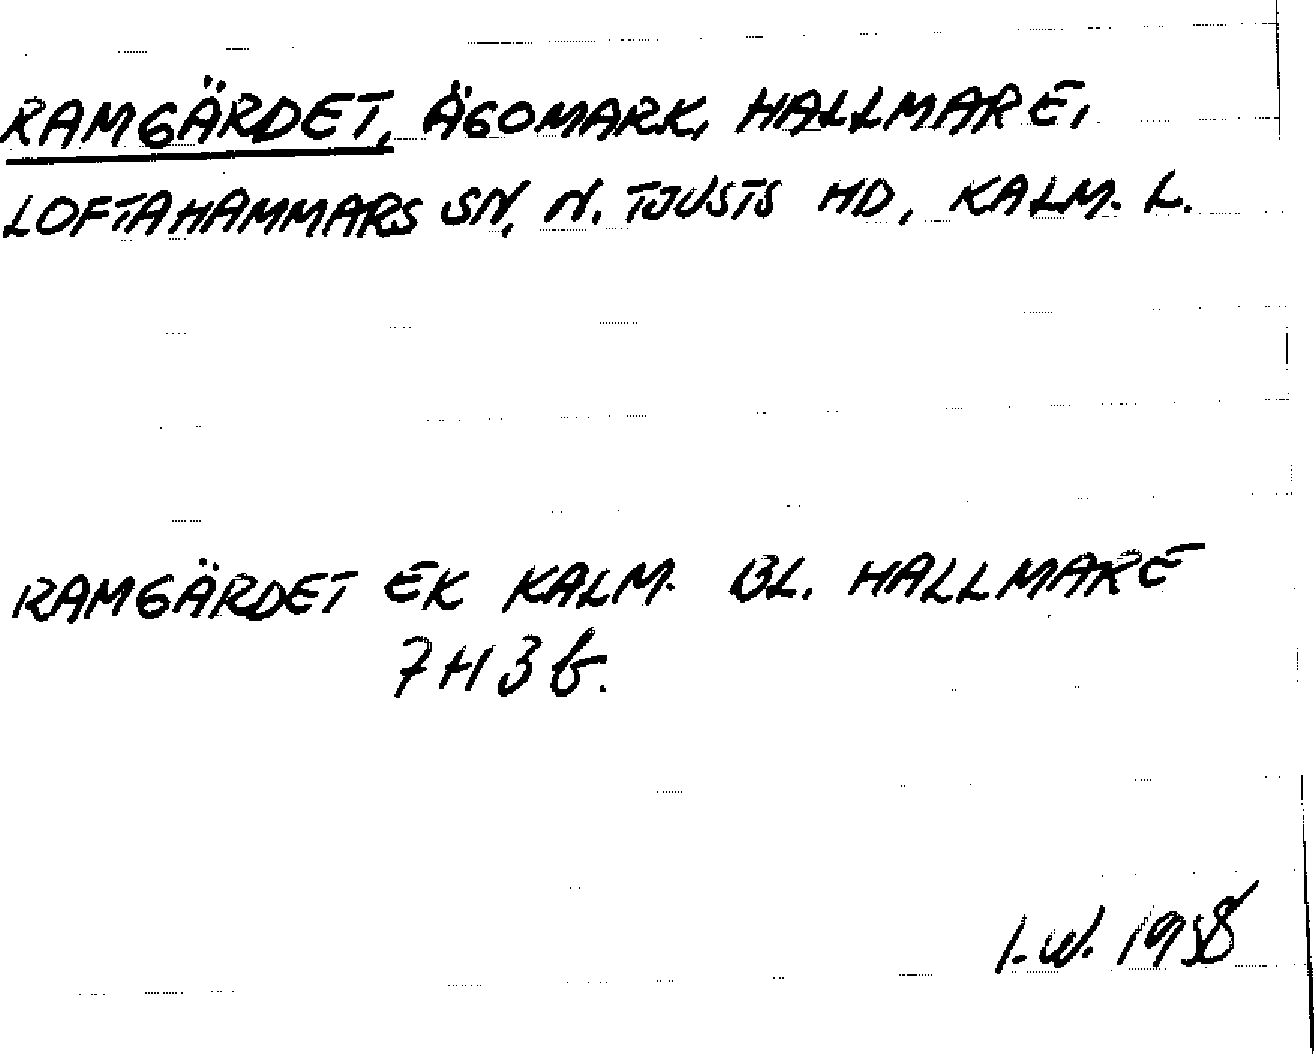 RAMGÄRDET, ÄGOMARK, HALLMARE,
LOFTAHAMMARS SN, N. TJUSTS HD, KALM. L.
RAMGÄRDET EK KALM. BL. HALLMARE
7H3b.
I.W. 1958